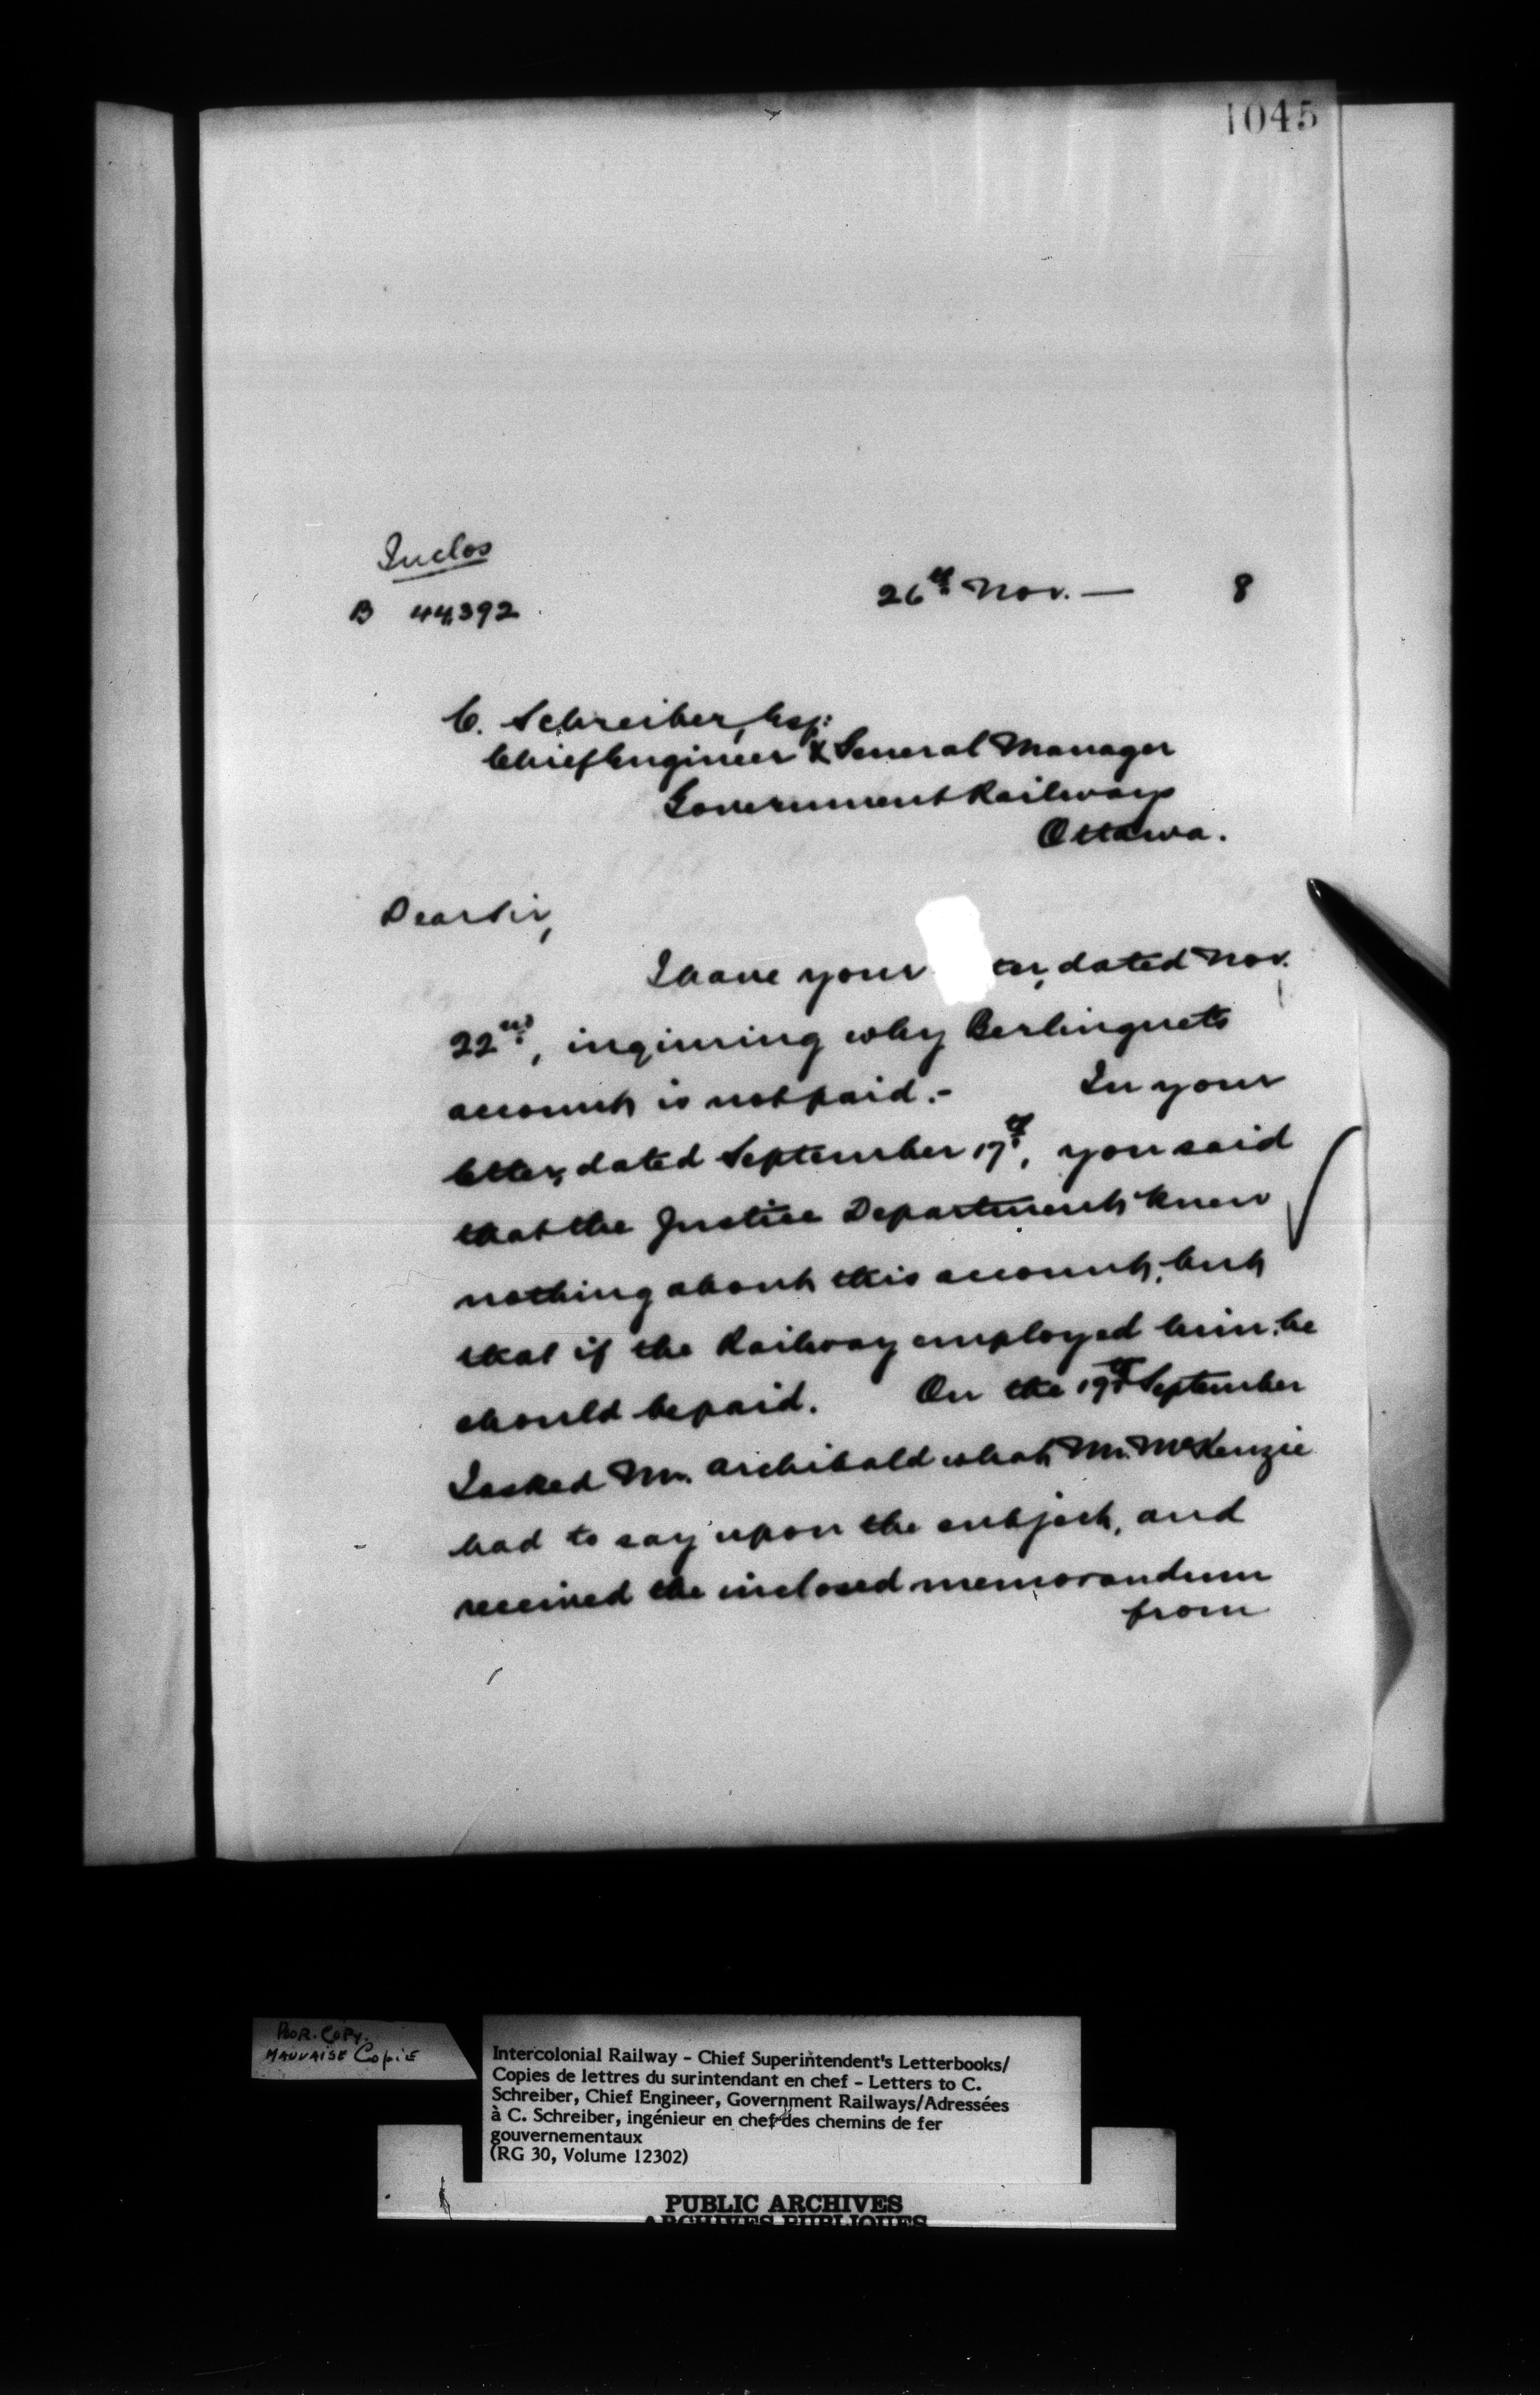 1045
Inclos
B 44,392
26th Nov. — 8
C. Schreiber, Esq:
Chief Engineer & General Manager
Government Railways
Ottawa.
Dear Sir,
I have your ter, dated Nov.
22nd, inquiring why Berlinguets
account is not paid.- In your
letter, dated September 17th, you said
that the Justice Department knew
nothing about this account, but
that if the Railway employed him he
should be paid. On the 19th September
I asked Mr. Archibald what Mr. McKenzie
had to say upon the subject, and
received the inclosed memorandum
from
POOR. COPY.
MAUVAISE COPIE
Intercolonial Railway - Chief Superintendent's Letterbooks/
Copies de lettres du surintendant en chef - Letters to C.
Schreiber, Chief Engineer, Government Railways/Adressées
à C. Schreiber, ingénieur en chef des chemins de fer
gouvernementaux
(RG 30, Volume 12302)
PUBLIC ARCHIVES
ARCHIVES PUBLIQUES